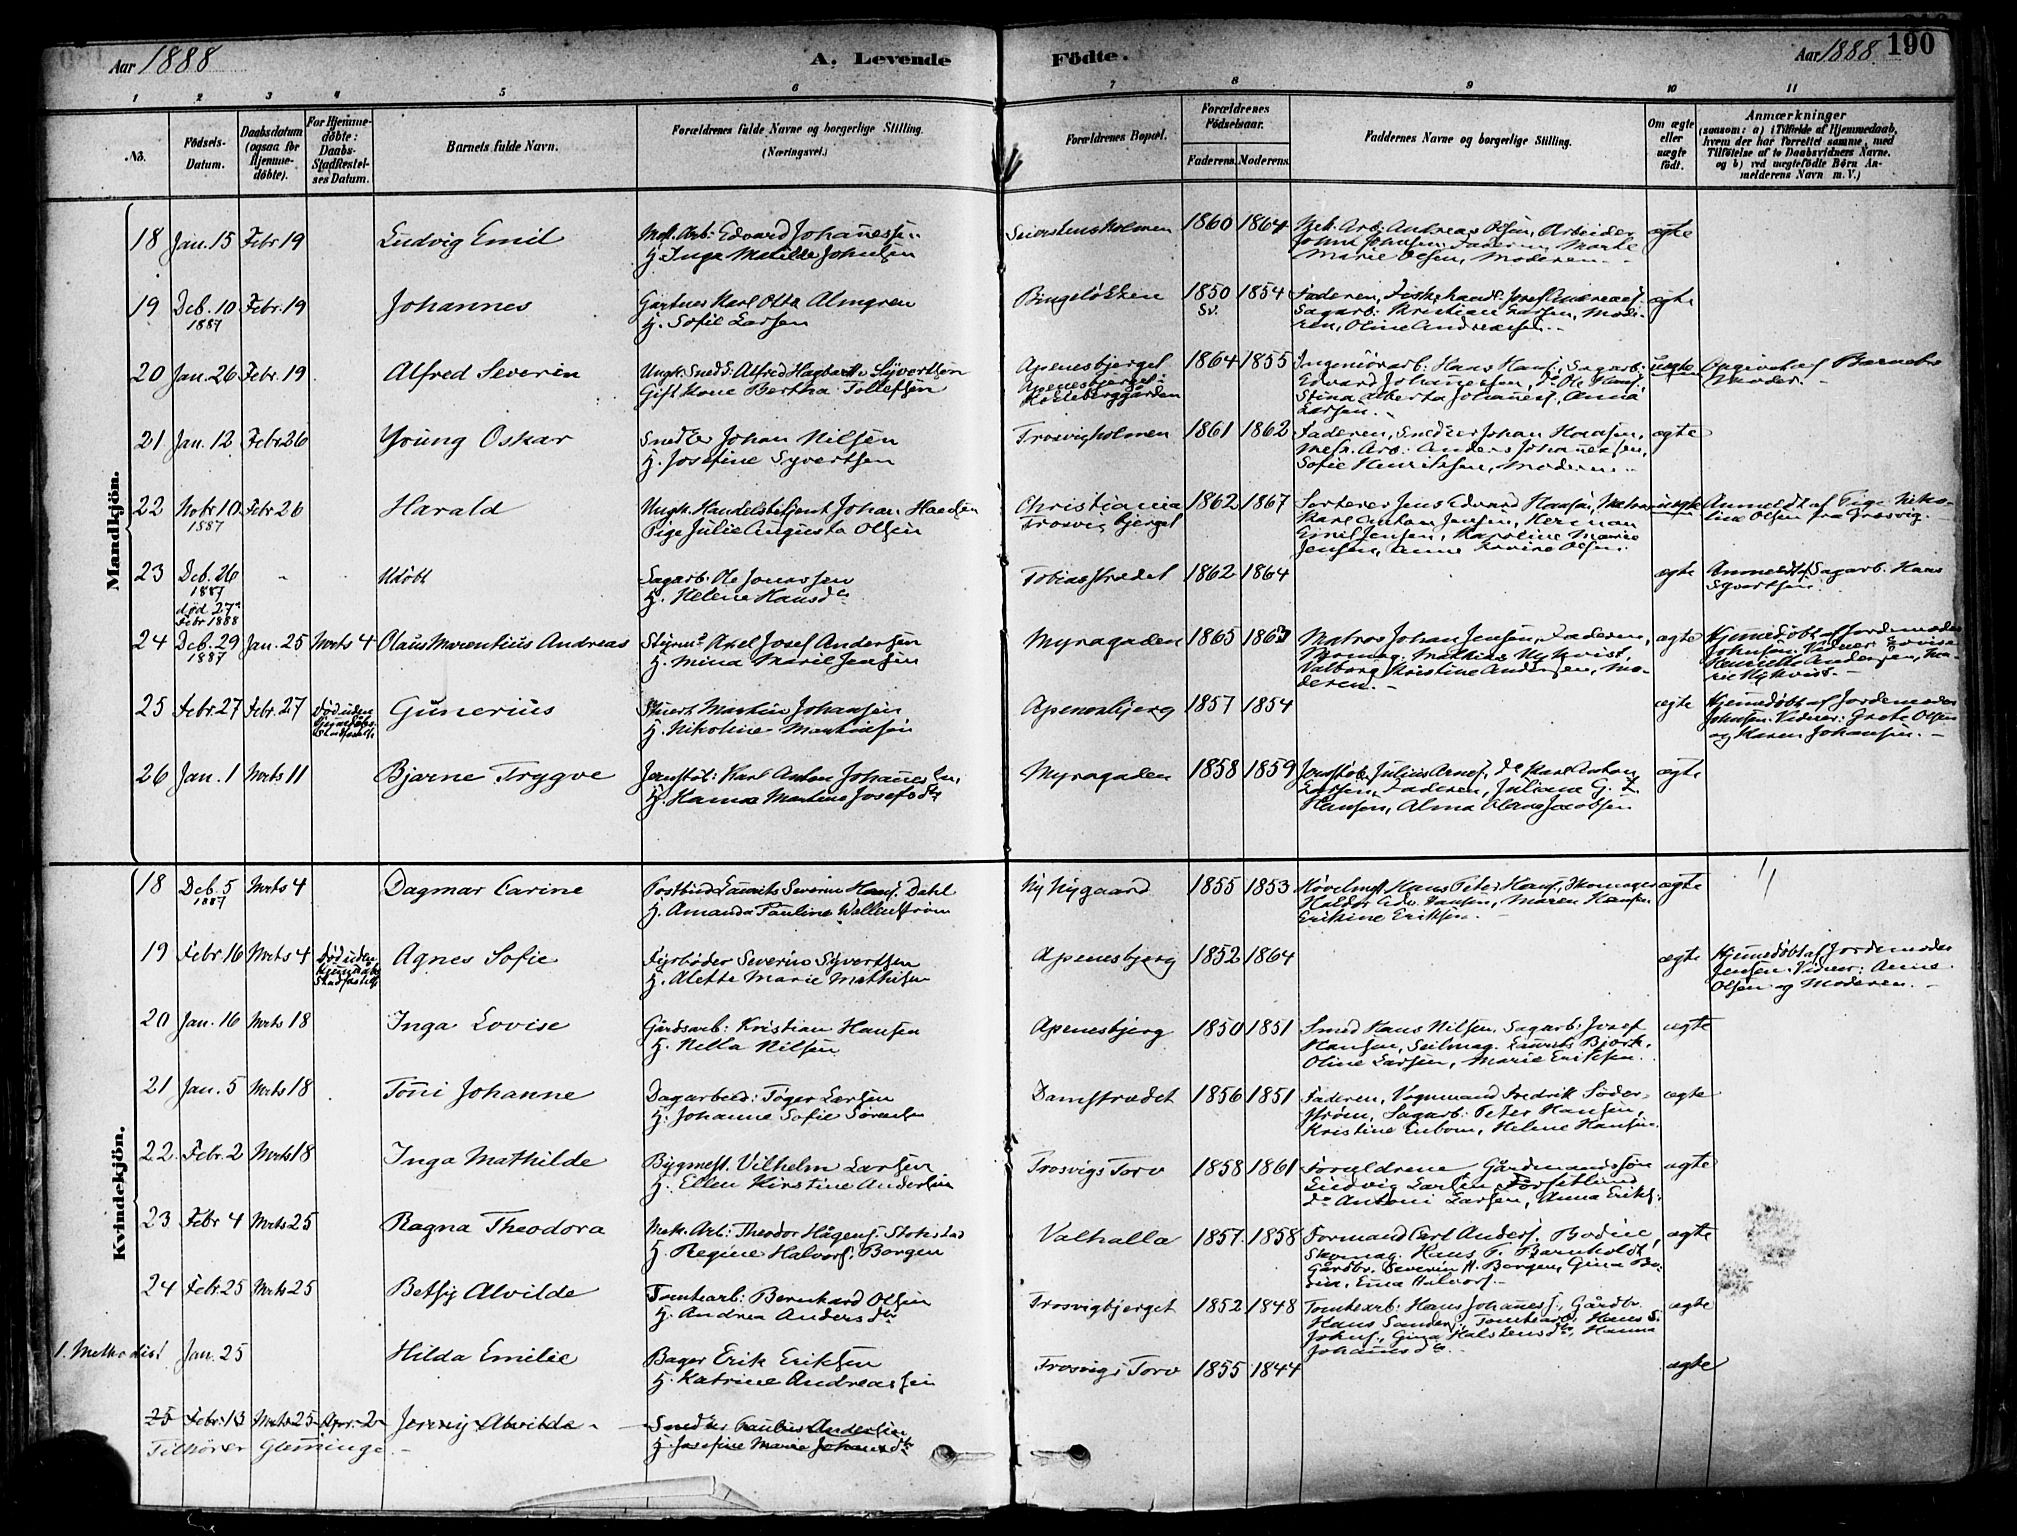 Aar 1888
A. Levende
Födte.
Aar 1888
190
1 2 3 4 5 6 7 8 9 10 11
No.
Födsels-
Datum.
Daabsdatum
(ogsaa for
Hjemme-
døbte).
For Hjemme-
døbte:
Daabs-
Stadfæstel-
ses Datum.
Barnets fulde Navn.
Forældrenes fulde Navne og borgerlige Stilling.
(Næringsvei.)
Forældrenes Bopæl.
Forældrenes
Födselsaar.
Faderens. Moderens.
Faddernes Navne og borgerlige Stilling.
Om ægte
eller
uægte
födt.
Anmærkninger
(saasom: a) i Tilfælde af Hjemmedaab,
hvem der har forrettet samme, med
Tilföielse af to Daabsvidners Navne,
og b) ved uægtefödte Børn An-
melderens Navn m. V.)
Mandkjön.
18 Jan. 15 Febr 19 Ludvig Emil
Mek. Arb: Edvard Johannessen
H. Inga Matilde Johnsen
1860 1864
Mek. Arb: Andreas Olsen, Arbeider
Johan Johansen, Faderen, Marte
Marie Olsen, Moderen
ægte
19 Deb. 10 1887 Febr. 19 Johannes
Gartner Karl Otto Almgren
H. Sofie Larsen
Bingeløkken 1850 Sv. 1854
Faderen, Fiskehandl: Josef Andreass.
Sagarb: Kristian Larsen, Mode-
ren, Oline Andreasen
ægte
20 Jan. 26 Febr. 19 Alfred Severin
Ungk. Snedk: Alfred Hagbarth Syvertsen
Gift Kone Bertha Tollefsen
Apenesbjerget
Apenesbjerget:
1864 1855
Ingeniörarb: Hans Hans., Sagarb:
Edvard Johannessen, Do Ole Hans.
Stina Alberta Johannes., Anna
Larsen
uægte
Opgivet af Barnets
Moder.
21 Jan. 12 Febr 26 Young Oskar
Snedker Johan Nilsen
H. Josefine Syvertsen
Trosvigholmen 1861 1862
Faderen, Snedker Johan Hansen,
Mek. Arb: Anders Johannessen,
Sofie Henriksen, Moderen
ægte
22 Nobr 10 1887 Febr 26 Harald
Ungk. Handelsbetjent Johan Hansen
Pige Julie Augusta Olsen
Christiania
Trosvigbjerget
1862 1867
Sorterer Jens Edvard Hansen, Matros
Karl Anton Jensen, Herman
Emil Jensen, Karoline Marie
Jensen, Anne Olsen
uægte
Anmeldt af Pige Niko-
line Olsen fra Trosvig.
23 Deb. 26 1887 død 27de Febr 1888 Udöbt
Sagarb: Ole Jonassen
H. Helene Hansdtr
Tobiasstrædet 1862 1864
ægte
Anmeldt af Sagarb. Hans
Syvertsen
24 Deb. 29 1887 Jan. 25 Marts 4 Olaus Morentius Andreas
Styrmd Axel Josef Andersen
H. Mina Marie Jensen
Myragaden 1865 1863
Matros Johan Jensen, Faderen,
Mathias Nykvist,
Valborg Kristine Andersen, Mo-
deren.
ægte
Hjemedöbt af Jordemoder
Johnsen. Vidner: Lovise
Henriette Andersen, Ma-
rie Nykvist.
25 Febr. 27 Febr. 27 Død uden Hjemedaabs Stadfæstelse Gunerius
Stuert Martin Johansen
H. Nikoline Martinsen
Apenesbjerg 1857 1854
ægte
Hjemedöbt af Jordemoder
Johnsen. Vidner: Grete Olsen
og Karen Johansen.
26 Jan. 1 Marts 11 Bjarne Trygve
Jernstøb: Karl Anton Johannessen
H. Hanna Martine Josefsdtr
Myragaden 1858 1859
Jernstøb. Julius Arnes., Do Karl Anton
Larsen, Faderen, Juliane G. L.
Hansen, Alma Jacobsen
ægte
Kvindekjön.
18 Deb. 5 1887 Marts 4 Dagmar Carine
Postbud Laurits Severin Hans. Dahl
H. Amanda Pauline Wallenström
Ny Nygaard 1855 1853
Høvelmst Hans Peter Hans., Skomager
Haldor Edv. Hansen, Maren Hansen
Erikine Eriksen.
ægte
19 Febr. 16 Marts 4 Død uden Hjemmedaabs Stadfæstelse Agnes Sofie
Fyrbøder Severin Syvertsen
H. Alette Marie Mathisen
Apenesbjerg 1852 1864
ægte
Hjemedöbt af Jordemoder
Jensen. Vidner: Anne
Olsen og Moderen.
20 Jan. 16 Marts 18 Inga Lovise
Gårdsarb: Kristian Hansen
H. Netta Nilsen
Apenesbjerg 1850 1851
Smed Hans Nilsen, Sagarb: Josef
Hansen, Seilmag. Laurits Bjørk,
Oline Larsen, Marie Eriksen.
ægte
21 Jan. 5 Marts 18 Toni Johanne
Dagarbeid: Töger Larsen
H. Johanne Sofie Sörensen
Damstrædet 1856 1851
Faderen, Vognmand Fredrik Söder-
ström, Sagarb: Peter Hansen,
Kristine Enbom, Helene Hansen.
ægte
22 Febr. 2 Marts 18 Inga Mathilde
Bygmest. Vilhelm Larsen
H. Ellen Kirstine Andersen
Trosvigs Torv 1858 1861
Forældrene, Gårdmandssön
Ludvig Larsen Torsetlund
do Antoni Larsen, Anna Eriks.
ægte
23 Febr 4 Marts 25 Ragna Theodora
Mek. Arb: Theodor Hågens. Stokstad
H. Regine Halvors. Borgen
Valhalla 1857 1858
Formand Carl Anders. Bodin,
Skomag. Hans T. Barnholdt,
Gårdbr. Severin H. Borgen, Gina Bo-
din, Ema Halvors.
ægte
24 Febr. 25 Marts 25 Betsy Alvilde
Tomtearb: Bernhard Olsen
H. Andrea Andersdtr
Trosvigbjerget 1852 1848
Tomtearb: Hans Johannes., Gårdbr.
Hans Sanders., Tomtearb. Hans S.
Johns., Gina Halstensdtr, Hanna
Johannsdtr.
ægte
1. Methodist Jan. 25 Hilda Emilie
Bager Erik Eriksen
H. Katrine Andreassen
Trosvigs Torv 1855 1844
ægte
25 Febr. 13 Marts 25 Apr. 2 Jenny Alvilda
Snedker Paulus Andersen
H. Josefine Marie Johansdtr
Tilhører Glemminge.